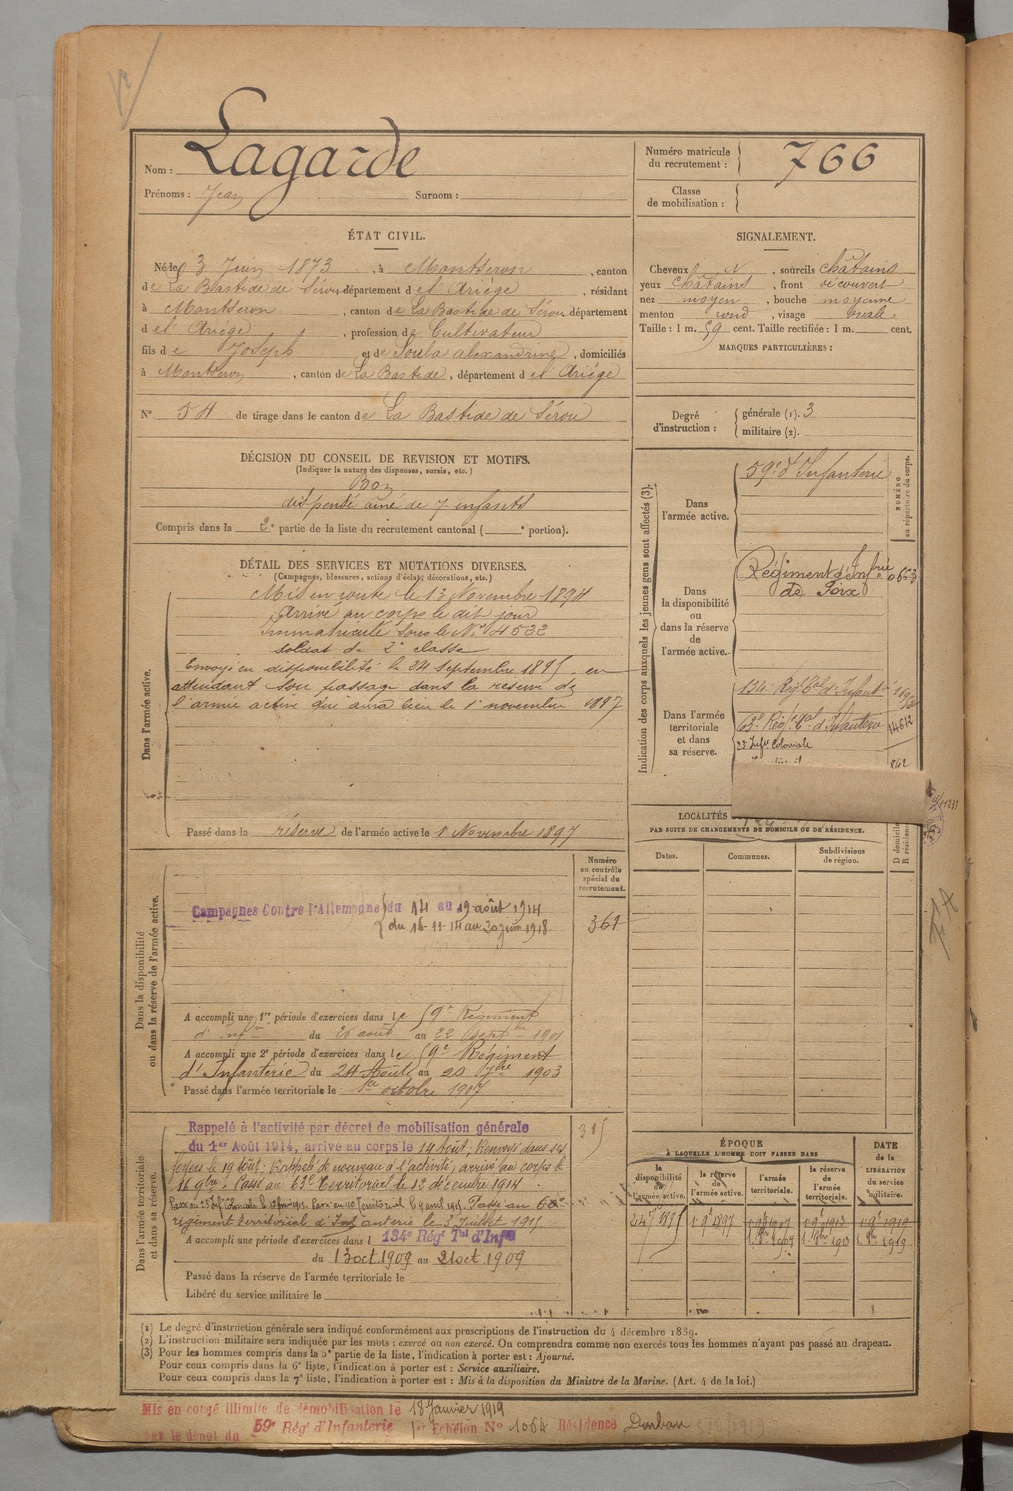 Nom : Lagarde
Prénoms : Jean Surnom :
Numéro matricule du recrutement : 766
Classe de mobilisation :
ÉTAT CIVIL.
Né le 3 Juin 1873, à Montseron, canton
de La Bastide de Sérou département de l'Ariège, résidant
à Montseron, canton de La Bastide de Sérou département
de l'Ariège, profession de Cultivateur
fils de Joseph et de Soula alexandrine, domiciliés
à Montseron, canton de La Bastide, département de l'Ariège
N° 54 de tirage dans le canton de La Bastide de Sérou
SIGNALEMENT.
Cheveux N, sourcils châtains
yeux châtains, front découvert
nez moyen, bouche moyenne
menton rond, visage ovale
Taille : 1 m. 59 cent. Taille rectifiée : 1 m. cent.
MARQUES PARTICULIÈRES :
Degré d'instruction : générale (1). 3
militaire (2).
DÉCISION DU CONSEIL DE REVISION ET MOTIFS.
(Indiquer la nature des dispenses, sursis, etc.)
Bon
dispensé aîné de 7 enfants
Compris dans la 2e partie de la liste du recrutement cantonal ( e portion).
DÉTAIL DES SERVICES ET MUTATIONS DIVERSES.
(Campagnes, blessures, actions d'éclat, décorations, etc.)
Dans l'armée active.
Mis en route le 13 Novembre 1894
Arrivé au corps le dit jour
Immatriculé sous le N° 4522
soldat de 2e classe
Envoyé en disponibilité le 24 septembre 1895 en
attendant son passage dans la réserve de
l'armée active qui aura lieu le 1er novembre 1897
Passé dans la réserve de l'armée active le 1 Novembre 1897
Indication des corps auxquels les jeunes gens sont affectés (3).
NUMÉRO au répertoire du corps.
Dans l'armée active.
59e d'Infanterie
Dans la disponibilité ou dans la réserve de l'armée active.
Régiment d'Infrie de Foix
Dans l'armée territoriale et dans sa réserve.
134e Régt tal d'Infanterie
63e Régt tal d'Infanterie 14612
23e Infie Coloniale
LOCALITÉS
PAR SUITE DE CHANGEMENTS DE DOMICILE OU DE RÉSIDENCE.
Dates. Communes. Subdivisions de région.
Dans la disponibilité ou dans la réserve de l'armée active.
Numéro au contrôle spécial du recrutement.
361
Campagnes Contre l'Allemagne du 14 au 19 août 1914
du 16-11-14 au 20 juin 1918
A accompli une 1re période d'exercices dans le 59e Régiment
d'infie du 26 août au 22 septbre 1901
A accompli une 2e période d'exercices dans le 59e Régiment
d'Infanterie du 24 Août au 20 7bre 1903
Passé dans l'armée territoriale le 1er octobre 1907
Dans l'armée territoriale et dans sa réserve.
315
Rappelé à l'activité par décret de mobilisation générale
du 1er Août 1914, arrivé au corps le 14 Août; Renvoyé dans ses
foyers le 19 août; Rappelé de nouveau à l'activité, arrivé au corps le
16 9bre, Passé au 63e Territorial le 12 décembre 1914
Passé au 60e
régiment territorial d'Infanterie le 3 Juillet 1915
A accompli une période d'exercices dans l 134e Régt Tal d'Infie
du 13 oct. 1909 au 21 oct. 1909
Passé dans la réserve de l'armée territoriale le
Libéré du service militaire le
ÉPOQUE
A LAQUELLE L'HOMME DOIT PASSER DANS
la disponibilité de l'armée active.
la réserve de l'armée active.
l'armée territoriale.
la réserve de l'armée territoriale.
DATE de la LIBÉRATION du service militaire.
24 7 1895 1 9e 1897
(1) Le degré d'instruction générale sera indiqué conformément aux prescriptions de l'instruction du 4 décembre 1889.
(2) L'instruction militaire sera indiquée par les mots : exercé ou non exercé. On comprendra comme non exercés tous les hommes n'ayant pas passé au drapeau.
(3) Pour les hommes compris dans la 5e partie de la liste, l'indication à porter est : Ajourné.
Pour ceux compris dans la 6e liste, l'indication à porter est : Service auxiliaire.
Pour ceux compris dans la 7e liste, l'indication à porter est : Mis à la disposition du Ministre de la Marine. (Art. 4 de la loi.)
Mis en congé illimité de démobilisation le 18 Janvier 1919
par le dépôt du 59e Rég' d'Infanterie 1er Echelon N° 1064 Résidence Durban